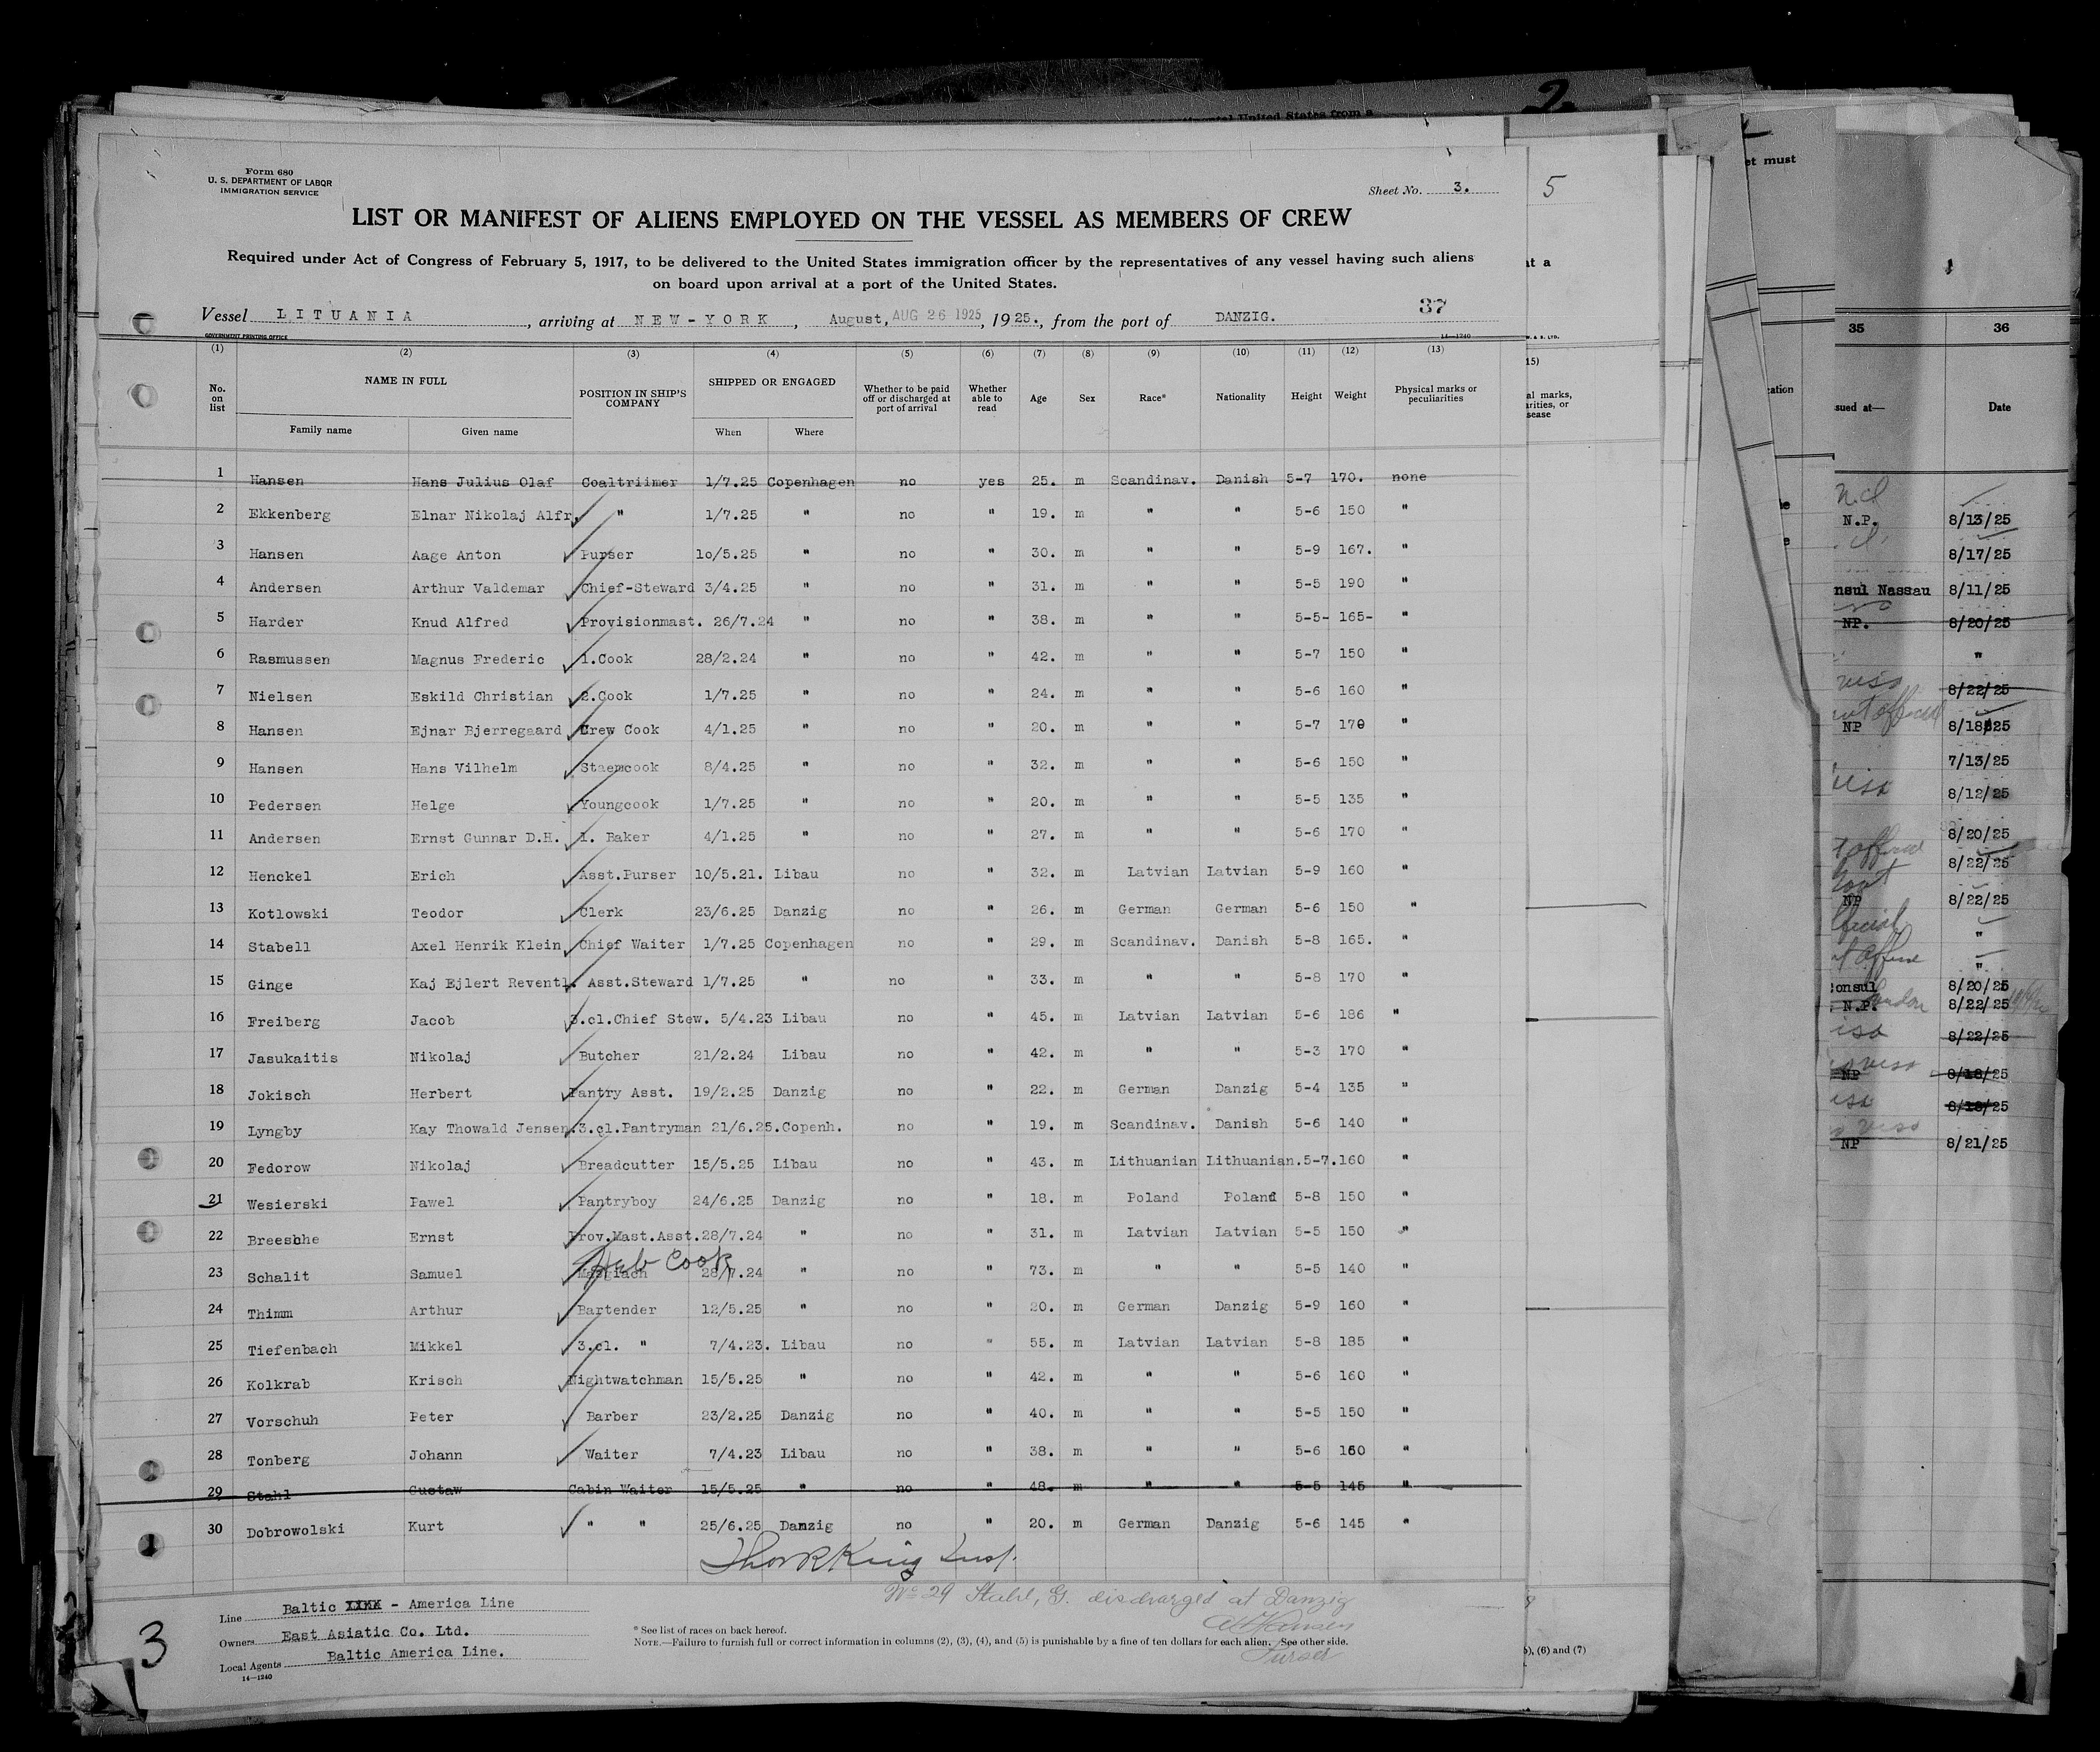 Form 680
U. S. DEPARTMENT OF LABOR
IMMIGRATION SERVICE
Sheet No. 3.
LIST OR MANIFEST OF ALIENS EMPLOYED ON THE VESSEL AS MEMBERS OF CREW
Required under Act of Congress of February 5, 1917, to be delivered to the United States immigration officer by the representatives of any vessel having such aliens
on board upon arrival at a port of the United States.
37
Vessel LITUANIA, arriving at NEW-YORK, August, AUG 26 1925, 1925., from the port of DANZIG.
GOVERNMENT PRINTING OFFICE 14—1240
(1) (2) (3) (4) (5) (6) (7) (8) (9) (10) (11) (12) (13)
No. on list NAME IN FULL POSITION IN SHIP'S COMPANY SHIPPED OR ENGAGED Whether to be paid off or discharged at port of arrival Whether able to read Age Sex Race* Nationality Height Weight Physical marks or peculiarities
Family name Given name When Where
1 Hansen Hans Julius Olaf Coaltriimer 1/7.25 Copenhagen no yes 25. m Scandinav. Danish 5-7 170. none
2 Ekkenberg Elnar Nikolaj Alfr. " 1/7.25 " no " 19. m " " 5-6 150 "
3 Hansen Aage Anton Purser 10/5.25 " no " 30. m " " 5-9 167. "
4 Andersen Arthur Valdemar Chief-Steward 3/4.25 " no " 31. m " " 5-5 190 "
5 Harder Knud Alfred Provisionmast. 26/7.24 " no " 38. m " " 5-5- 165- "
6 Rasmussen Magnus Frederic 1.Cook 28/2.24 " no " 42. m " " 5-7 150 "
7 Nielsen Eskild Christian 2.Cook 1/7.25 " no " 24. m " " 5-6 160 "
8 Hansen Ejnar Bjerregaard Crew Cook 4/1.25 " no " 20. m " " 5-7 170 "
9 Hansen Hans Vilhelm Staemcook 8/4.25 " no " 32. m " " 5-6 150 "
10 Pedersen Helge Youngcook 1/7.25 " no " 20. m " " 5-5 135 "
11 Andersen Ernst Gunnar D.H. 1. Baker 4/1.25 " no " 27. m " " 5-6 170 "
12 Henckel Erich Asst.Purser 10/5.21. Libau no " 32. m Latvian Latvian 5-9 160 "
13 Kotlowski Teodor Clerk 23/6.25 Danzig no " 26. m German German 5-6 150 "
14 Stabell Axel Henrik Klein Chief Waiter 1/7.25 Copenhagen no " 29. m Scandinav. Danish 5-8 165. "
15 Ginge Kaj Ejlert Reventl. Asst.Steward 1/7.25 " no " 33. m " " 5-8 170 "
16 Freiberg Jacob 3.cl.Chief Stew. 5/4.23 Libau no " 45. m Latvian Latvian 5-6 186 "
17 Jasukaitis Nikolaj Butcher 21/2.24 Libau no " 42. m " " 5-3 170 "
18 Jokisch Herbert Pantry Asst. 19/2.25 Danzig no " 22. m German Danzig 5-4 135 "
19 Lyngby Kay Thowald Jensen.3.cl.Pantryman 21/6.25.Copenh. no " 19. m Scandinav. Danish 5-6 140 "
20 Fedorow Nikolaj Breadcutter 15/5.25 Libau no " 43. m Lithuanian Lithuanian.5-7.160 "
21 Wesierski Pawel Pantryboy 24/6.25 Danzig no " 18. m Poland Poland 5-8 150 "
22 Breeshhe Ernst Prov.Mast.Asst.28/7.24 " no " 31. m Latvian Latvian 5-5 150 "
Heb Cook
23 Schalit Samuel Masgiach 28/7.24 " no " 73. m " " 5-5 140 "
24 Thimm Arthur Bartender 12/5.25 " no " 20. m German Danzig 5-9 160 "
25 Tiefenbach Mikkel 3.cl. " 7/4.23. Libau no " 55. m Latvian Latvian 5-8 185 "
26 Kolkrab Krisch Nightwatchman 15/5.25 " no " 42. m " " 5-6 160 "
27 Vorschuh Peter Barber 23/2.25 Danzig no " 40. m " " 5-5 150 "
28 Tonberg Johann Waiter 7/4.23 Libau no " 38. m " " 5-6 160 "
29 Stahl Gustaw Cabin Waiter 15/5.25 " no " 48. m " " 5-5 145 "
30 Dobrowolski Kurt " " 25/6.25 Danzig no " 20. m German Danzig 5-6 145 "
King Insp.
No 29 Stahl, G. discharged at Danzig
AAHansen
Purser
Line Baltic - America Line
Owners East Asiatic Co. Ltd.
Local Agents Baltic America Line.
14—1240
* See list of races on back hereof.
NOTE.—Failure to furnish full or correct information in columns (2), (3), (4), and (5) is punishable by a fine of ten dollars for each alien. See other side.
3
2
continental United States from a
5
at a
W. & S. LTD.
15)
al marks,
arities, or
sease
), (6) and (7)
et must
35 36
sued at— Date
N.P. 8/13/25
8/17/25
nsul Nassau 8/11/25
NP. 8/20/25
"
8/22/25
NP 8/18/25
7/13/25
8/12/25
8/20/25
8/22/25
NP 8/22/25
"
"
onsul 8/20/25
N.P. London 8/22/25
8/22/25
NP 8/18/25
8/18/25
NP 8/21/25